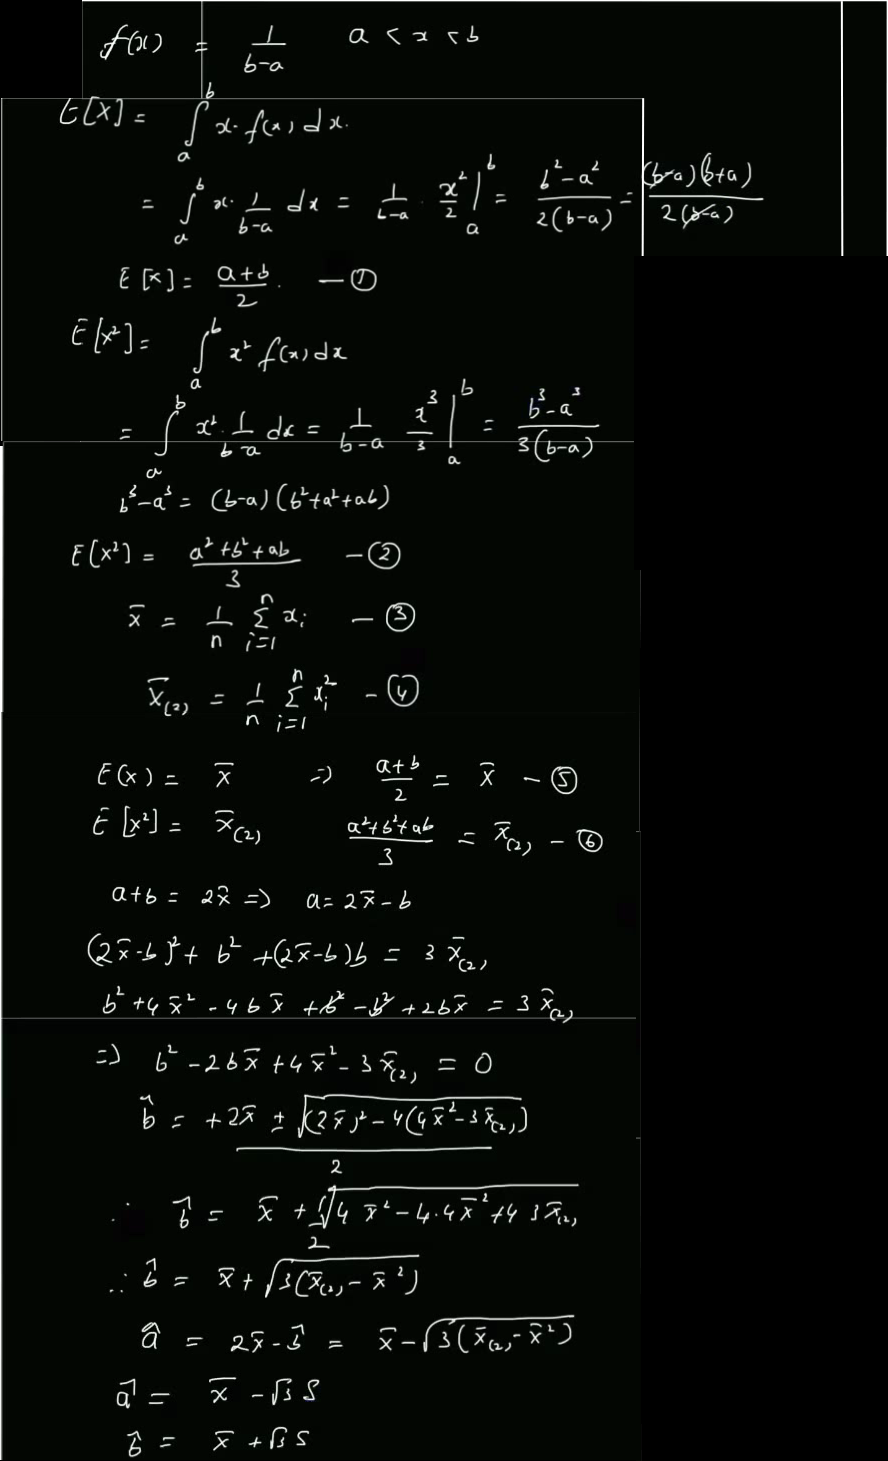 f(x) = 1/(b-a)   a < x < b
E[X] = ∫_a^b x. f(x) dx.
= ∫_a^b x. 1/(b-a) dx = 1/(b-a) . x²/2 |_a^b = (b²-a²)/(2(b-a)) = (b-a)(b+a)/(2(b-a))
E[x] = (a+b)/2. — ①
E[x²] = ∫_a^b x² f(x) dx
= ∫_a^b x². 1/(b-a) dx = 1/(b-a) x³/3 |_a^b = (b³-a³)/(3(b-a))
b³-a³ = (b-a)(b²+a²+ab)
E[x²] = (a²+b²+ab)/3 — ②
x̄ = 1/n Σ_{i=1}^n x_i — ③
x̄_(2) = 1/n Σ_{i=1}^n x_i² — ④
E(x) = x̄ ⇒ (a+b)/2 = x̄ — ⑤
E[x²] = x̄_(2)   (a²+b²+ab)/3 = x̄_(2) — ⑥
a+b = 2x̄ ⇒ a = 2x̄-b
(2x̄-b)² + b² + (2x̄-b)b = 3x̄_(2)
b²+4x̄²-4bx̄+b²-b²+2bx̄ = 3x̄_(2)
⇒ b²-2bx̄+4x̄²-3x̄_(2) = 0
b̂ = (+2x̄ ± √((2x̄)²-4(4x̄²-3x̄_(2))))/2
∴ b̂ = x̄ + 1/2 √(4x̄²-4.4x̄²+4 3x̄_(2))
∴ b̂ = x̄+√(3(x̄_(2)-x̄²))
â = 2x̄-b̂ = x̄-√(3(x̄_(2)-x̄²))
â = x̄ -√3 S
b̂ = x̄ +√3 S